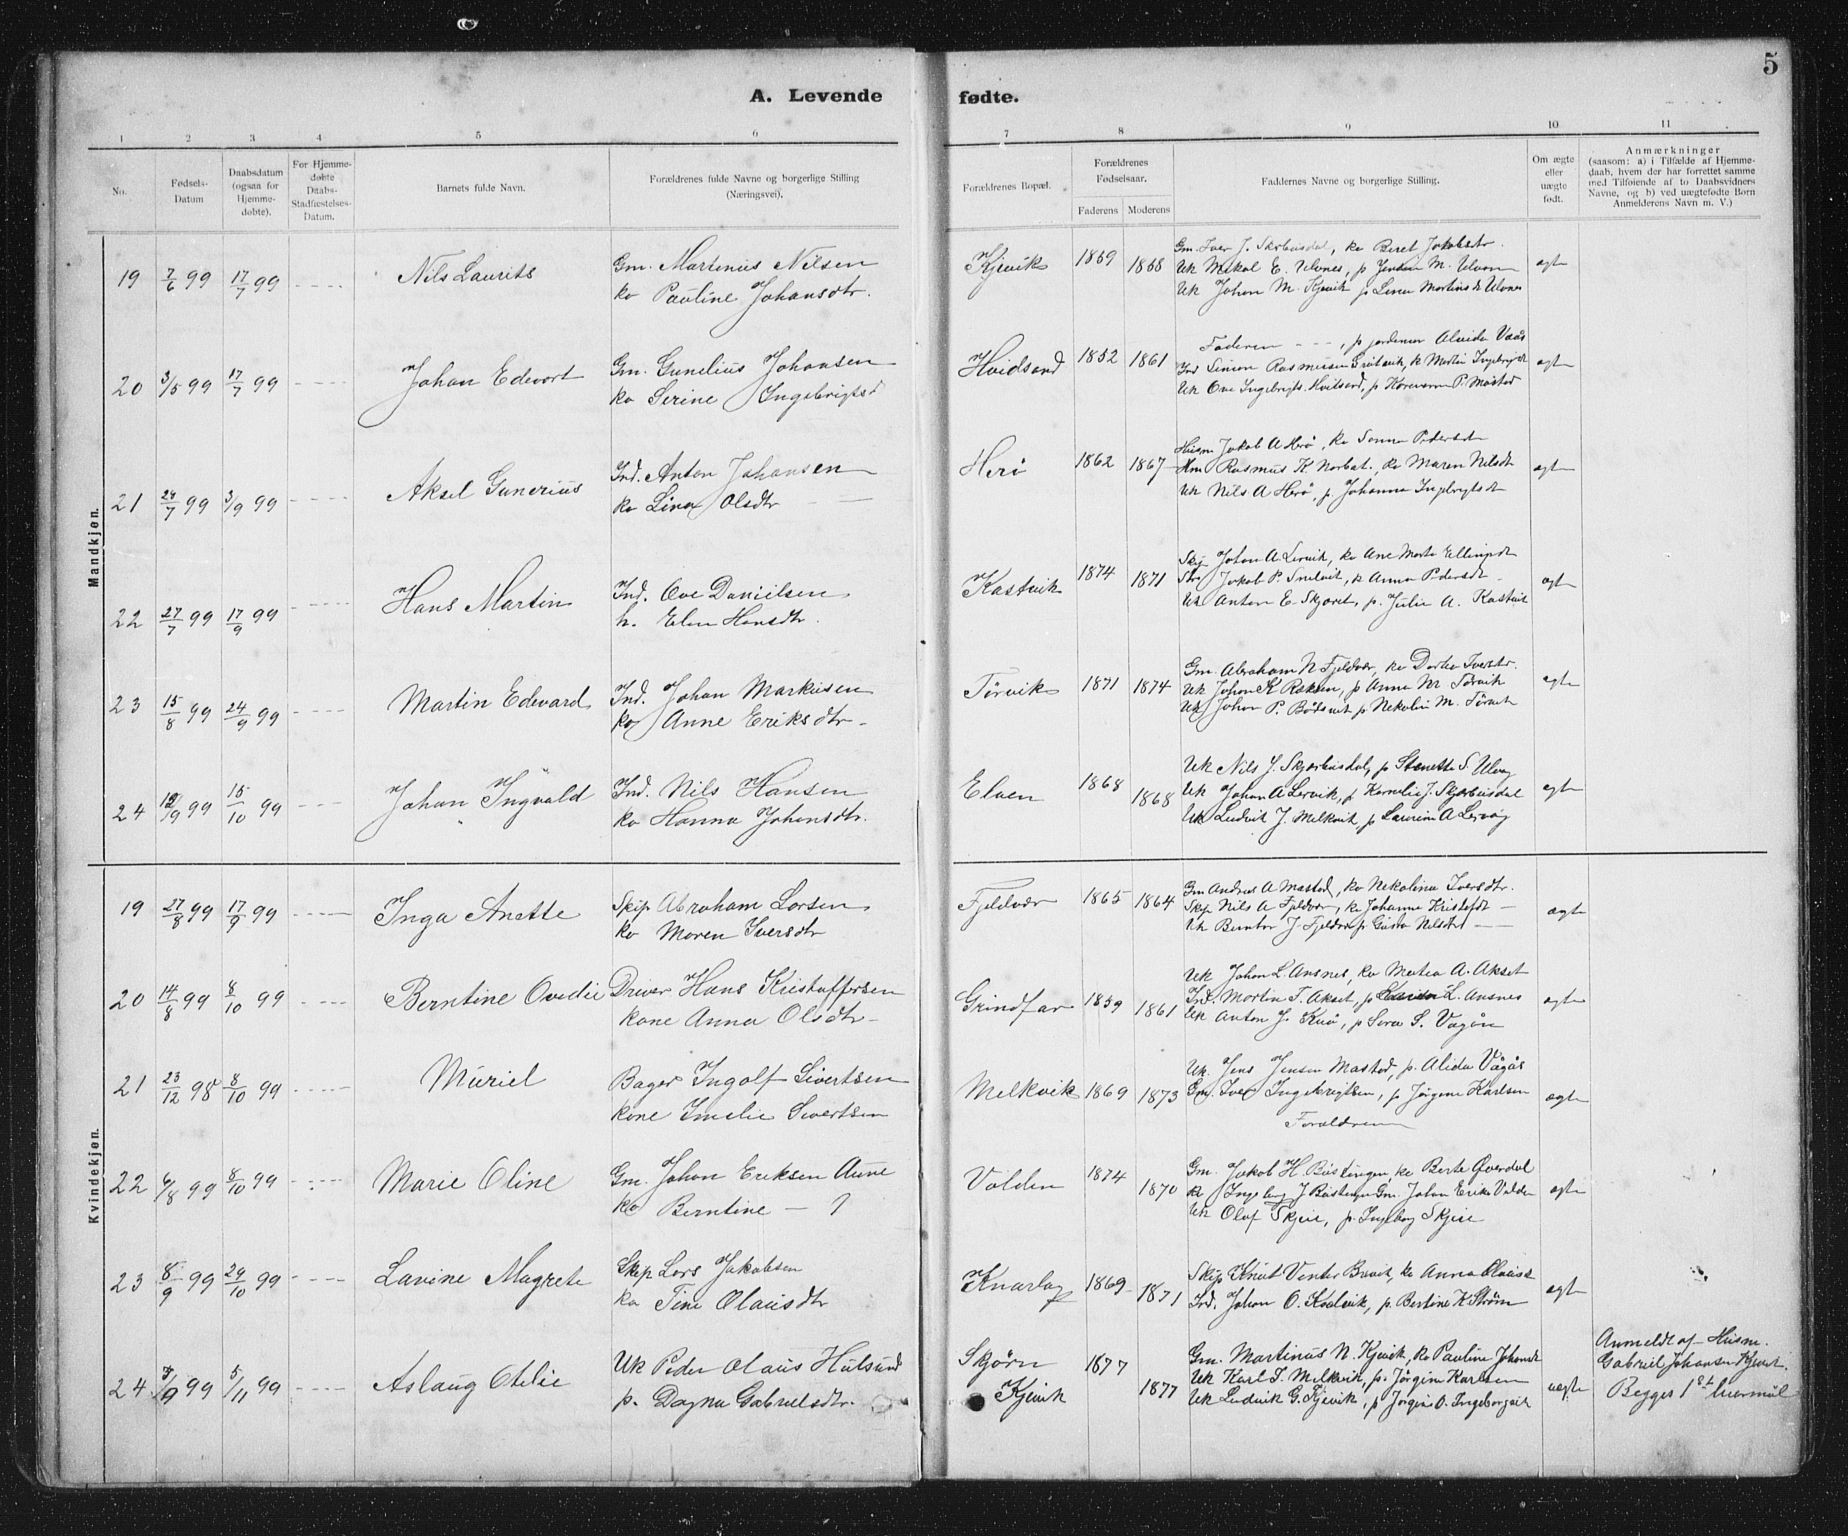 5
A. Levende fødte.
1 2 3 4 5 6 7 8 9 10 11
No.
Fødsels-
Datum
Daabsdatum
(ogsaa for
Hjemme-
døbte).
For Hjemme-
døbte
Daabs-
Stadfæstelses-
Datum.
Barnets fulde Navn.
Forældrenes fulde Navne og borgerlige Stilling
(Næringsvei).
Forældrenes Bopæl.
Forældrenes
Fødselsaar.
Faderens Moderens
Faddernes Navne og borgerlige Stilling.
Om ægte
eller
uægte
født.
Anmærkninger
(saasom: a) i Tilfælde af Hjemme-
daab, hvem der har forrettet samme
med Tilføiende af to Daabsvidners
Navne, og b) ved uægtefødte Børn
Anmelderens Navn m. V.)
Mandkjøn.
19 7/6 99 17/7 99 Nils Laurits
Gm. Martinus Nilsen
ko Pauline Johansdtr.
Kjevik 1869 1868
Gm. Iver J. Skarbusdal, ko Beret Jakobsdtr.
Uk Mikal E. Ulvnes, p Jensen M. Ulvan
Uk Johan M. Kjevik p Lina Martinsd Ulvnes
ægte
20 3/5 99 17/7 99 Johan Edevart
Gm. Gunelius Johansen
ko Serine Ingebrigtsd
Hvidsand 1852 1861
Faderen - - -, p jordemor Alvida Vaås
Ind Simon Rasmusen Grøtvik, k Martin Ingebrigdt
Uk Ove Ingebrigts. Hvitsand, p P. Mastad
ægte
21 24/7 99 3/9 99 Aksel Gunerius
Ind. Anton Johansen
ko Lina Olsdtr
Herø 1862 1867
Husm Jakob A Herø, ko Sanna Pedersdt
Hm Rasmus K. Norbat, ko Maren Nilsdt
Uk Nils A Herø, p Johanna Ingebrigtsdt
ægte
22 27/7 99 17/9 99 Hans Martin
Ind. Ove Danielsen
h. Elen Hansdtr.
Kastvik 1874 1871
Skip Johan A Lervik, ko Ane Marta Ellingsdt
Jakob P. Snilvit, k Anna Pedersdt
Uk Anton E. Skjøret, p. Julie A. Kastvik
ægte
23 15/8 99 24/9 99 Martin Edevard
Ind. Johan Markusen
ko Anne Eriksdtr
Tørvik 1871 1874
Gm. Abraham N Fjeldvær, ko Dorte Iversdtr.
Uk Johan K Roksen, p Anna M Tørvik
Uk Johan P. Bådsvit p Nekolin M. Tørvit
ægte
24 12/9 99 15/10 99 Johan Ingvald
Ind. Nils Hansen
ko Hanna Johansdtr.
Elven 1868 1868
Uk Nils J. Skjærbusdal, p Stenette S. Ulvåg
Uk Johan A Lervik, p Kornelie J. Skjærbusdal
Uk Ludvik J. Melkvik, p Laurine A Lervåg
ægte
Kvindekjøn.
19 27/8 99 17/9 99 Inga Anette
Skip Abraham Larsen
ko Maren Iversdtr
Fjeldvær 1865 1864
Gm Andreas A Mastad, ko Nekolina Iversdtr.
Skip Nils A Fjeldvær, ko Johanna Kristofdt
Uk Berntar J. Fjeldvær p Gusta Nilsdtr
ægte
20 14/8 99 8/10 99 Berntine Ovidie
Driver Hans Kristoffersen
kone Anna Olsdtr
Grindfar 1859 1861
Uk Johan L. Ansnes, ko Martea A. Akset
Ind. Martin T. Akset, p L. Ansnes
Uk Anton J. Knø, p Sara S. Vågån
ægte
21 23/12 98 8/10 99 Muriel
Bager Ingolf Sivertsen
kone Imelie Sivertsen
Melkvik 1869 1873
Uk. Jens Jensen Mastad, p. Alida Vågås
Gm. Iver Ingebrigtsen, p Jørgine Karlsen
Forældrene
ægte
22 6/8 99 8/10 99 Marie Oline
Gm. Johan Eriksen Aune
ko Berntine - ?
Valden 1874 1870
Gm. Jakob H. Båstingen, ko Berte Øverdal
ko Ingebor J Båstingen Gm. Johan Eriks Valden
Uk Olaf Skjeie, p. Ingebog Skjeie
ægte
23 8/9 99 29/10 99 Lavine Magrete
Skip Lars Jakobsen
ko Tine Olausdtr
Knarlag 1869 1871
Skip Knut Venter Buvit, ko Anna Olausdt
Ind. Johan O. Kvalvik, p. Bertine K Strøm
ægte
24 3/9 99 5/11 99 Aslaug Otelie
Uk Peder Olaus Hulsund
p. Dagna Gabrielsdtr.
Skjørn
Kjevik 1877 1877
Gm. Martinus N. Kjevik, ko Pauline Johansdt
Uk Karl J. Melkvik, p. Jørgine Karlsen
Uk Ludvik G. Kjevik, p Jørgin O. Ingeborgvik
uægte
Anmeldt af Husm.
Gabriel Johansen Kjevik.
Begges 1st leiermål